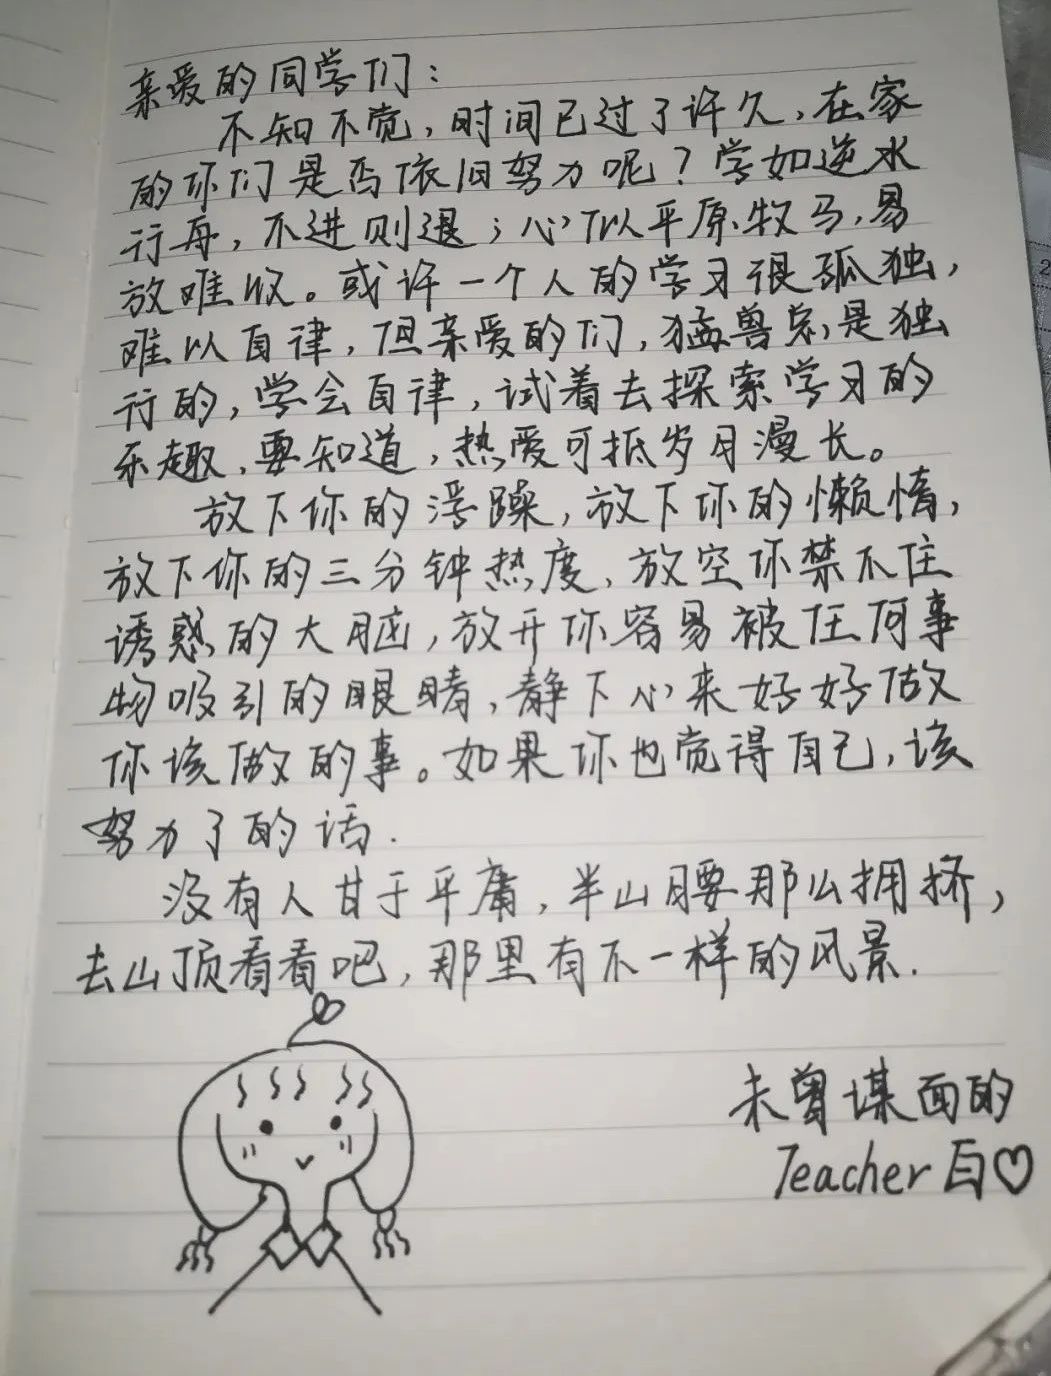 亲爱的同学们：
不知不觉，时间已过了许久，在家
的你们是否依旧努力呢？学如逆水
行舟，不进则退；心似平原牧马，易
放难收。或许一个人的学习很孤独，
难以自律，但亲爱的们，猛兽总是独
行的，学会自律，试着去探索学习的
乐趣，要知道，热爱可抵岁月漫长。
放下你的浮躁，放下你的懒惰，
放下你的三分钟热度，放空你禁不住
诱惑的大脑，放开你容易被任何事
物吸引的眼睛，静下心来好好做
你该做的事。如果你也觉得自己，该
努力了的话.
没有人甘于平庸，半山腰那么拥挤，
去山顶看看吧，那里有不一样的风景.
未曾谋面的
Teacher 白♡